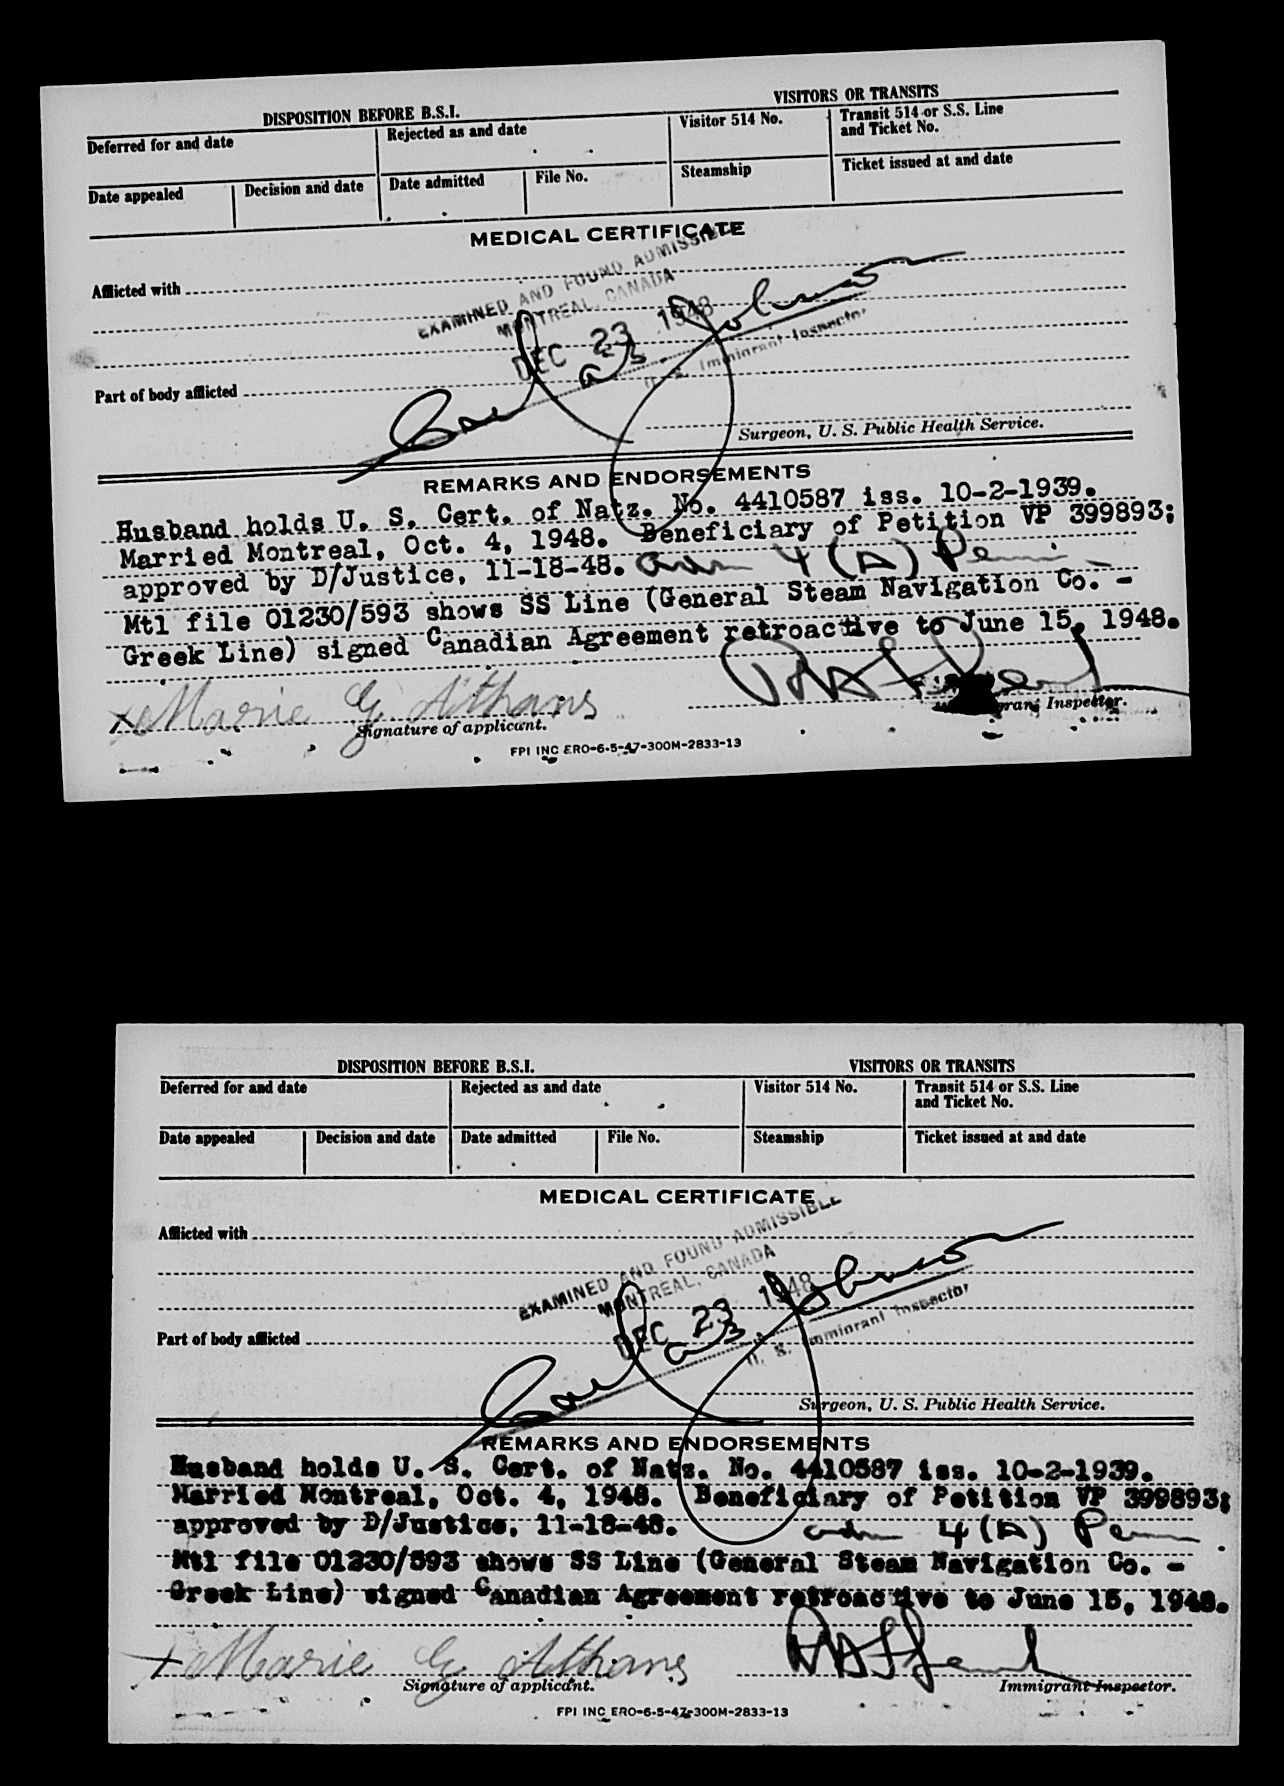 DISPOSITION BEFORE B.S.I.
VISITORS OR TRANSITS
Deferred for and date
Rejected as and date
Visitor 514 No.
Transit 514 or S.S. Line
and Ticket No.
Date appealed
Decision and date
Date admitted
File No.
Steamship
Ticket issued at and date
MEDICAL CERTIFICATE
Afflicted with
EXAMINED AND FOUND ADMISSIBLE
MONTREAL, CANADA
DEC 23 1948
Johnson
U. S. Immigrant Inspector
Part of body afflicted
Surgeon, U. S. Public Health Service.
REMARKS AND ENDORSEMENTS
Husband holds U. S. Cert. of Natz. No. 4410587 iss. 10-2-1939.
Married Montreal, Oct. 4, 1948. Beneficiary of Petition VP 399893;
approved by D/Justice, 11-18-48. adm 4 (A)
Mtl file 01230/593 shows SS Line (General Steam Navigation Co. -
Greek Line) signed Canadian Agreement retroactive to June 15, 1948.
x Marie G Athans
Signature of applicant.
Immigrant Inspector.
FPI INC ERO-6-5-47-300M-2833-13
DISPOSITION BEFORE B.S.I.
VISITORS OR TRANSITS
Deferred for and date
Rejected as and date
Visitor 514 No.
Transit 514 or S.S. Line
and Ticket No.
Date appealed
Decision and date
Date admitted
File No.
Steamship
Ticket issued at and date
MEDICAL CERTIFICATE
Afflicted with
EXAMINED AND FOUND ADMISSIBLE
MONTREAL, CANADA
DEC 23 1948
Johnson
U. S. Immigrant Inspector
Part of body afflicted
Surgeon, U. S. Public Health Service.
REMARKS AND ENDORSEMENTS
Husband holds U. S. Cert. of Natz. No. 4410587 iss. 10-2-1939.
Married Montreal, Oct. 4, 1948. Beneficiary of Petition VP 399893;
approved by D/Justice, 11-18-48. adm 4 (A)
Mtl file 01230/593 shows SS Line (General Steam Navigation Co. -
Greek Line) signed Canadian Agreement retroactive to June 15, 1948.
x Marie G Athans
Signature of applicant.
Immigrant Inspector.
FPI INC ERO-6-5-47-300M-2833-13